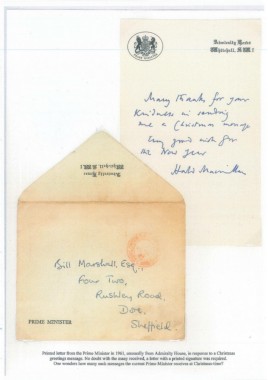 Admiralty House
Whitehall, S.W.1
Many thanks for your
kindness in sending
me a Christmas message
Very good wishes for
the New Year
Harold Macmillan
Admiralty House
Whitehall, S.W.1
Bill Marshall, Esq.,
Four Two,
Rushley Road,
Dore,
Sheffield.
PRIME MINISTER
Printed letter from the Prime Minister in 1961, unusually from Admiralty House, in response to a Christmas
greetings message. No doubt with the many received, a letter with a printed signature was required.
One wonders how many such messages the current Prime Minister receives at Christmas time?